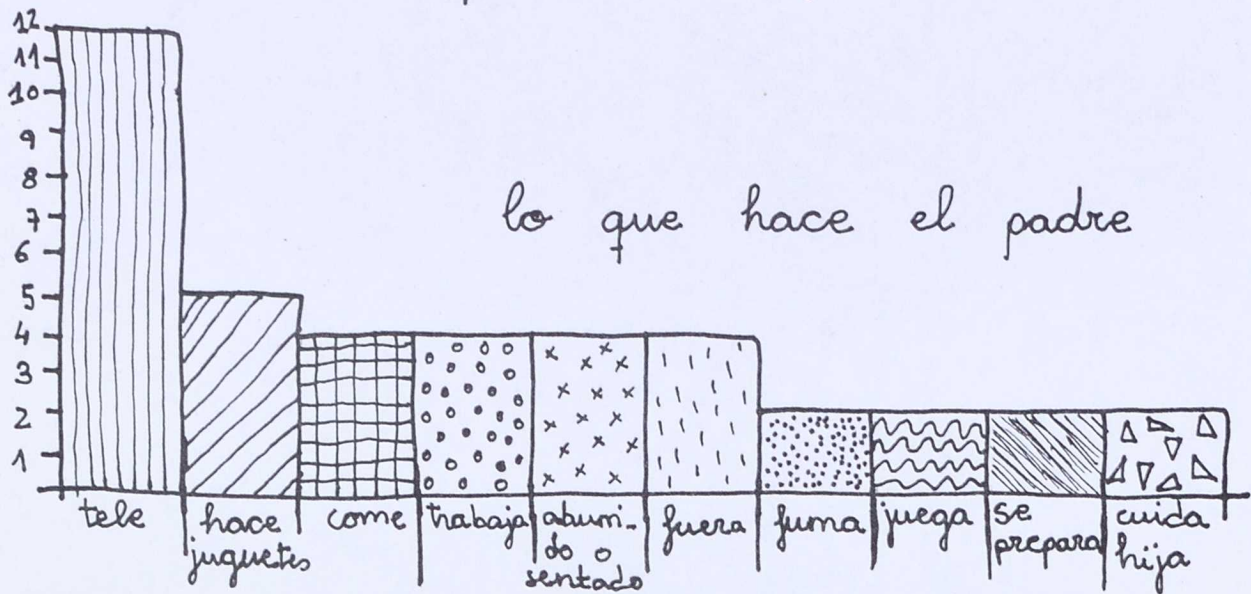 12
11
10
9
8
7
6
5
4
3
2
1
lo que hace el padre
tele
hace
juguetes
come
trabaja
aburri-
do o
sentado
fuera
fuma
juega
se
prepara
cuida
hija